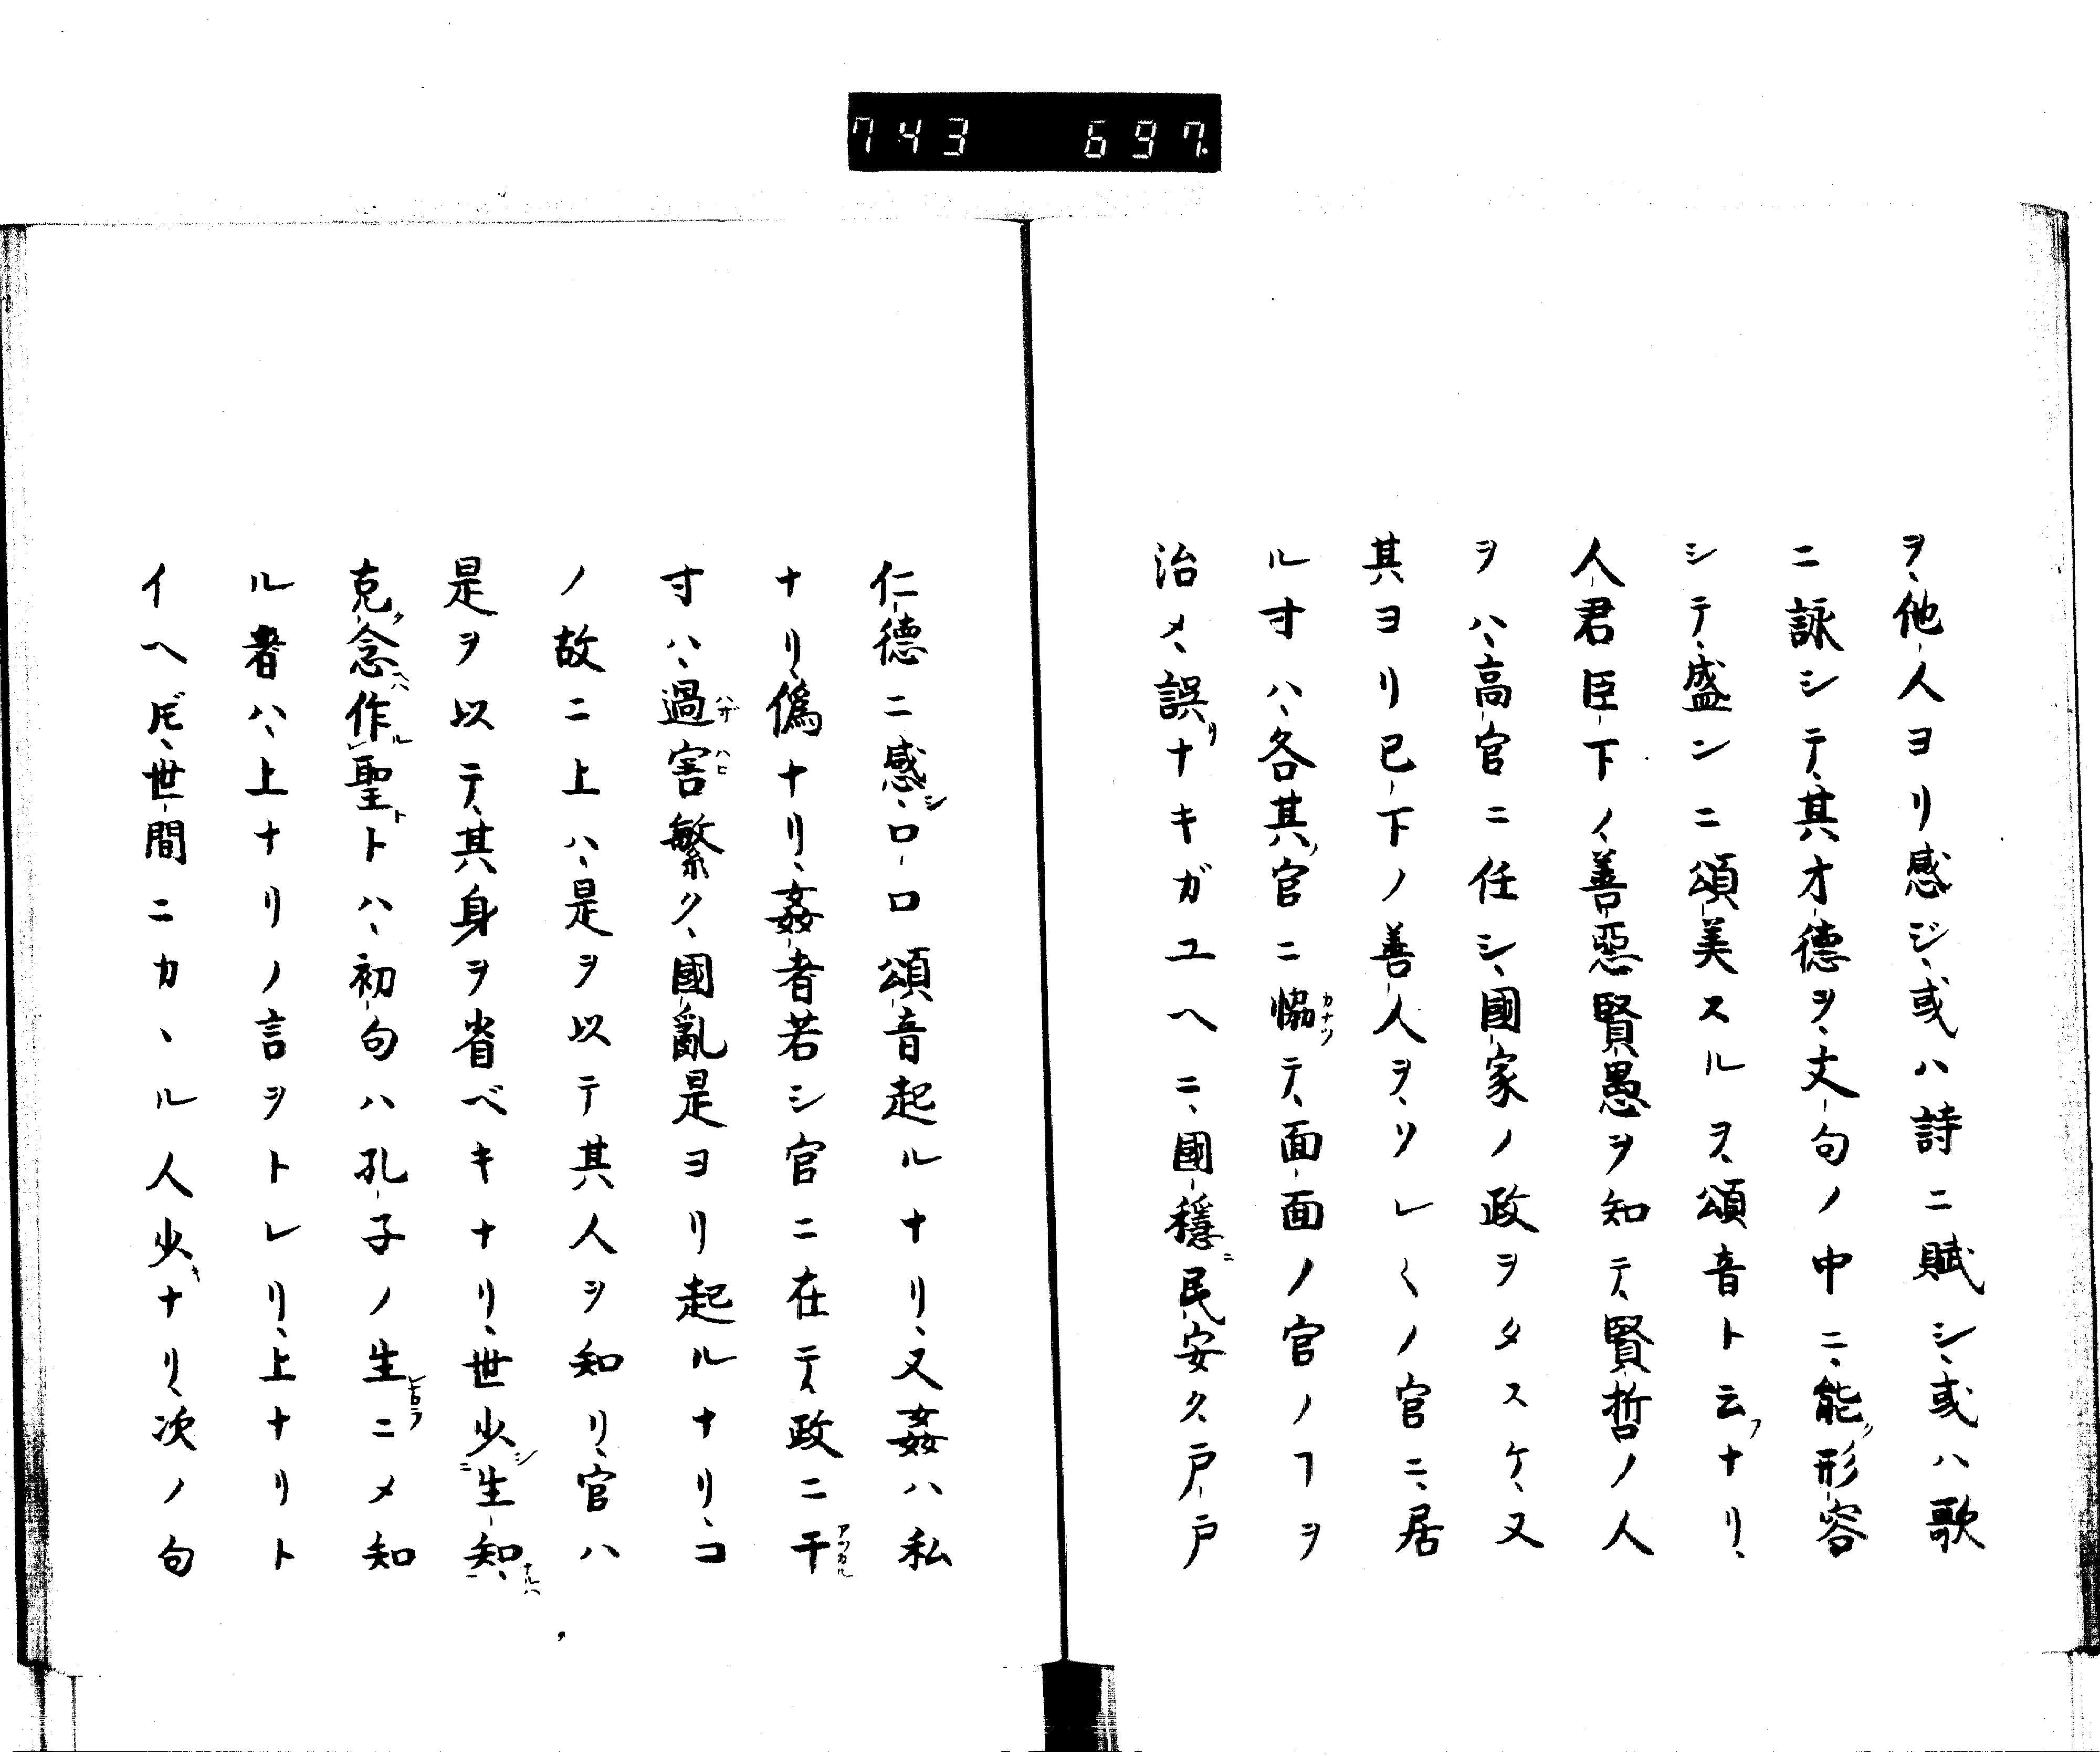 743 697.
ヲ、他人ヨリ感ジ、或ハ詩ニ賦シ、或ハ歌
ニ詠シテ、其才德ヲ、丈句ノ中ニ、能ク形容
シテ、盛ンニ頌美スルヲ、頌音ト云フナリ、
人君臣下ノ、善惡賢愚ヲ知テ、賢哲ノ人
ヲハ、高官ニ任シ、國家ノ政ヲタスケ、又
其ヨリ已下ノ善人ヲ、ソレ〱ノ官ニ、居
ル寸ハ、各其ノ官ニ恊カナツテ、面面ノ官ノヿヲ
治メ、誤リナキガユヘニ、國穩ニ民安ク、戸戸
仁德ニ感シ、口口頌音起ルナリ、又姦ハ私
ナリ、僞ナリ、姦者若シ官ニ在テ、政ニ干アツカル
寸ハ、過害繁ク、國亂是ヨリ起ルナリ、コ
ノ故ニ上ハ、是ヲ以テ其人ヲ知リ、官ハ
是ヲ以テ、其身ヲ省ベキナリ、世少シニ生知、ナルハ
克ク念ヘハ作ルレ聖ト、ハ、初句ハ孔子ノ生ニメ知
ル者ハ、上ナリノ言ヲトレリ、上ナリト
イヘ𪜈、世間ニカヽル人少キナリ、次ノ句